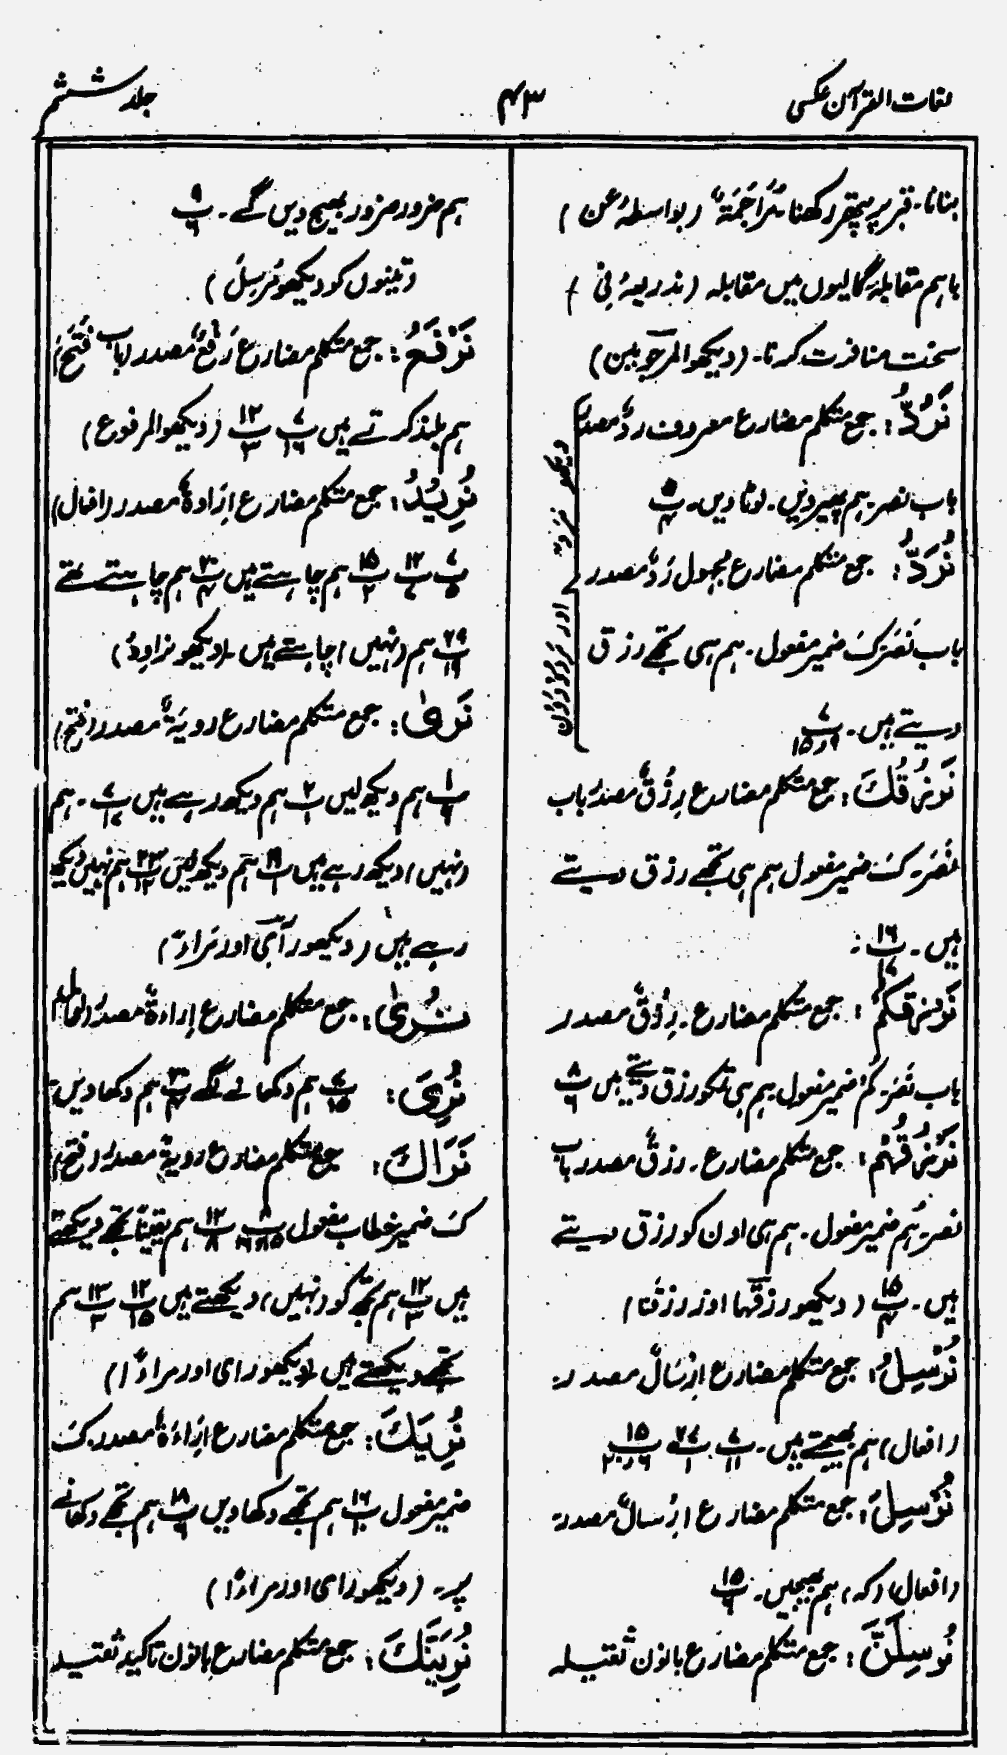 لغات القرآن عکسی
۴۳
جلد ششم
بنانا۔ قبر پر پتھر رکھنا مُرَاجَمَۃٌ (بواسطۂ عن)
باہم مقابلہ گالیوں میں مقابلہ (بذریعۂ فی)
سخت منافرت کرنا۔ (دیکھو المرجوبین)
نَرُدُّ: جمع متکلم مضارع معروف ردٌّ مصدر
باب نصر۔ ہم پھیر دیں۔ لوٹا دیں۔ پ
نُرَدُّ: جمع متکلم مضارع مجہول رَدٌّ مصدر
باب نَصَرَ کَ ضمیر مفعول۔ ہم ہی تجھے رزق
دیتے ہیں۔ پ
دیکھو نزدت اور مَرْدُوْدُوْن
نَرْزُقُكَ: جمع متکلم مضارع رِزْقٌ مصدر باب
نَصَرَ۔ کَ ضمیر مفعول ہم ہی تجھے رزق دیتے
ہیں۔ پ ۱۶
نَرْزُقُكُمْ: جمع متکلم مضارع۔ رِزْقٌ مصدر
باب نَصَرَ کُمْ ضمیر مفعول ہم ہی تمکو رزق دیتے ہیں پ ۸
نَرْزُقُهُمْ: جمع متکلم مضارع۔ رزقٌ مصدر باب
نصر۔ ہُم ضمیر مفعول۔ ہم ہی اون کو رزق دیتے
ہیں۔ پ ۱۵ (دیکھو رزقہا اور رزقنا)
نُرْسِلُ: جمع متکلم مضارع اِرْسَالٌ مصدر
(افعال) ہم بھیجتے ہیں۔ پ
نُرْسِلَ: جمع متکلم مضارع اِرْسالٌ مصدر
(افعال) (کہ) ہم بھیجیں۔ پ ۱۵
نُرْسِلَنَّ: جمع متکلم مضارع بانون ثقیلہ
ہم ضرور ضرور بھیج دیں گے۔ پ ۹
(تینوں کو دیکھو مُرسِلٌ)
نَرْفَعُ: جمع متکلم مضارع رَفْعٌ مصدر (باب فَتَحَ)
ہم بلند کرتے ہیں پ پ ۱۳ (دیکھو المرفوع)
نُرِيْدُ: جمع متکلم مضارع اِرَادۃٌ مصدر (افعال)
پ پ پ ہم چاہتے ہیں پ ہم چاہتے تھے
پ ہم (نہیں) چاہتے ہیں۔ (دیکھو نراوِدُ)
نَرٰى: جمع متکلم مضارع رویَۃٌ مصدر (فتح)
پ ہم دیکھ لیں پ ہم دیکھ رہے ہیں پ۔ ہم
(نہیں) دیکھ رہے ہیں پ ہم دیکھ لیں پ ہم نہیں دیکھ
رہے ہیں (دیکھو رآی اور مَرادّ)
نُرِىَ: جمع متکلم مضارع اِراءۃٌ مصدر (افعال)
نُرِىَ: پ ہم دکھانے لگے پ ہم دکھا دیں
نَرَاكَ: جمع متکلم مضارع رویۃٌ مصدر (فتح)
کَ ضمیر خطاب مفعول پ پ ہم یقیناً تجھے دیکھتے
ہیں پ ہم تجھ کو (نہیں) دیکھتے ہیں پ پ ہم
تجھے دیکھتے ہیں (دیکھو رای اور مرادًّا)
نُرِيَكَ: جمع متکلم مضارع اِرَاءَۃٌ مصدر۔ کَ
ضمیر مفعول پ ہم تجھے دکھا دیں پ ہم تجھے دکھانے
پر۔ (دیکھو رای اور مرادًّا)
نُرِيَنَّكَ: جمع متکلم مضارع بانون تاکید ثقیلہ